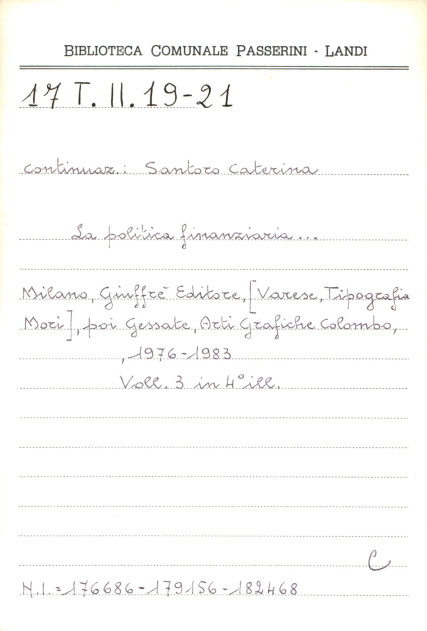 BIBLIOTECA COMUNALE PASSERINI - LANDI
17 T. II. 19-21
continuaz.: Santoro Caterina
La politica finanziaria...
Milano, Giuffrè Editore, [Varese, Tipografia
Mori], poi Gessate, Arti Grafiche Colombo,
, 1976-1983
Voll. 3 in 4° ill.
C
N.I. = 176686-179156-182468